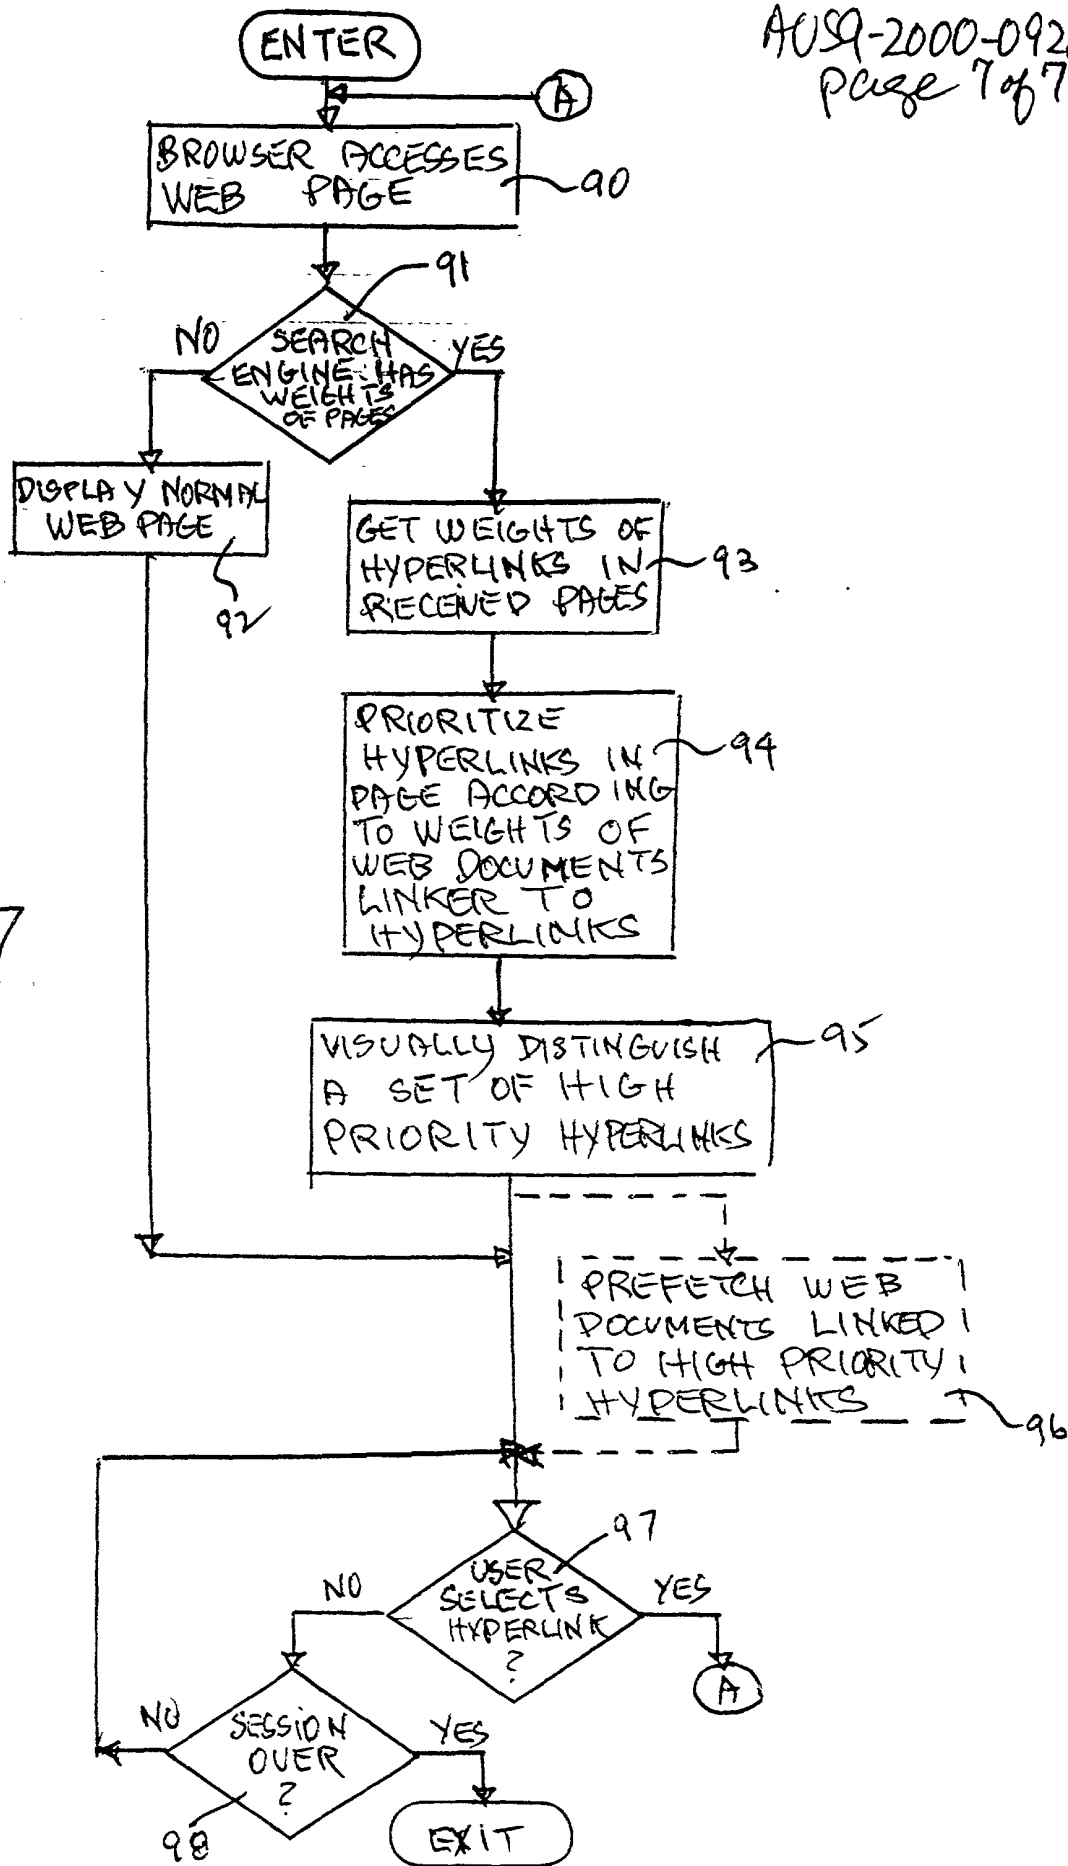 ENTER
AUS9-2000-092
page 7 of 7
A
BROWSER ACCESSES
WEB PAGE
90
91
NO
SEARCH
ENGINE HAS
WEIGHTS
OF PAGES
YES
DISPLAY NORMAL
WEB PAGE
92
GET WEIGHTS OF
HYPERLINKS IN
RECEIVED PAGES
93
PRIORITIZE
HYPERLINKS IN
PAGE ACCORDING
TO WEIGHTS OF
WEB DOCUMENTS
LINKER TO
HYPERLINKS
94
7
VISUALLY DISTINGUISH
A SET OF HIGH
PRIORITY HYPERLINKS
95
PREFETCH WEB
DOCUMENTS LINKED
TO HIGH PRIORITY
HYPERLINKS
96
97
NO
USER
SELECTS
HYPERLINK
?
YES
A
NO
SESSION
OVER
?
YES
98
EXIT